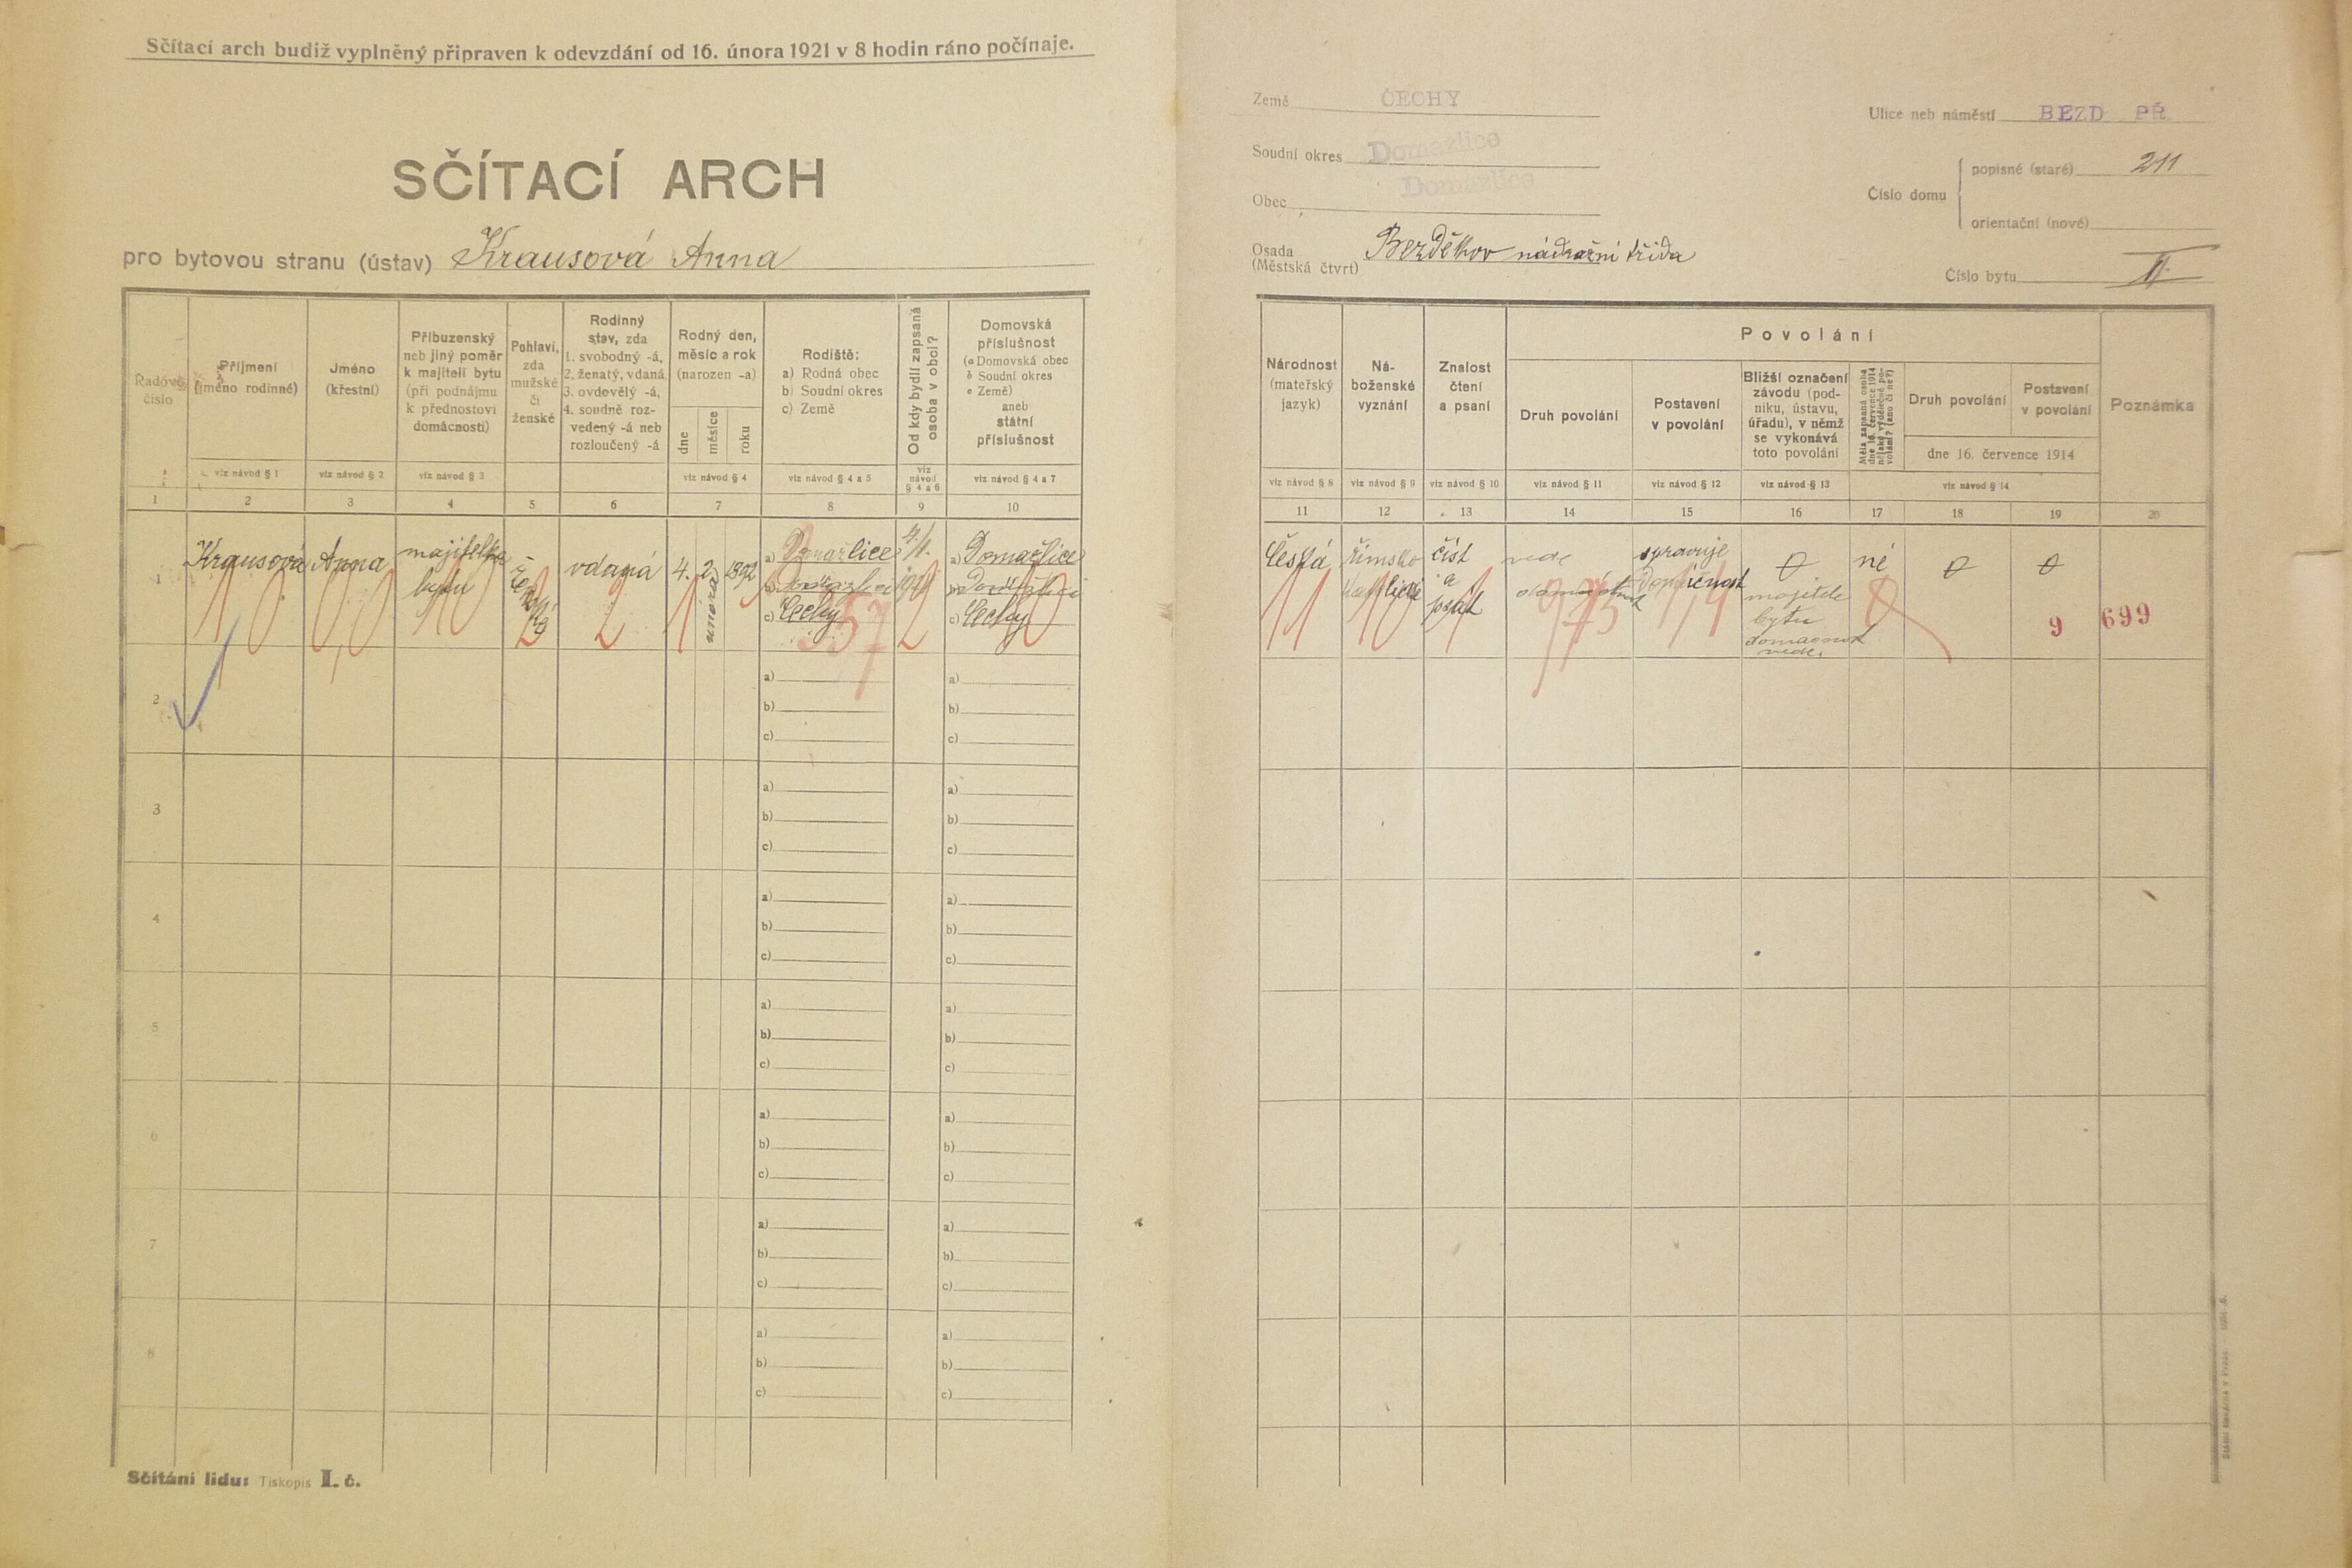 Sčítací arch budiž vyplněný připraven k odevzdání od 16. února 1921 v 8 hodin ráno počínaje.
SČÍTACÍ ARCH
pro bytovou stranu (ústav) Krausová Anna
Radové číslo
Příjmení (jméno rodinné)
Jméno (křestní)
Příbuzenský neb jiný poměr k majiteli bytu (při podnájmu k přednostovi domácnosti)
Pohlaví, zda mužské či ženské
Rodinný stav, zda 1. svobodný -á, 2. ženatý, vdaná, 3. ovdovělý -á, 4. soudně rozvedený -á neb rozloučený -á
Rodný den, měsíc a rok (narozen -a)
dne měsíce roku
Rodiště: a) Rodná obec b) Soudní okres c) Země
Od kdy bydlí zapsaná osoba v obci?
Domovská příslušnost (a Domovská obec b Soudní okres c Země) aneb státní příslušnost
viz návod § 1 viz návod § 2 viz návod § 3 viz návod § 4 viz návod § 4 a 5 viz návod § 4 a 6 viz návod § 4 a 7
1 2 3 4 5 6 7 8 9 10
1 Krausová Anna majitelka bytu ženská vdaná 4. 2 února
a) Domažlice
c) Čechy
a) Domažlice
c) Čechy
2
a) a)
b) b)
c) c)
3
a) a)
b) b)
c) c)
4
a) a)
b) b)
c) c)
5
a) a)
b) b)
c) c)
6
a) a)
b) b)
c) c)
7
a) a)
b) b)
c) c)
8
a) a)
b) b)
c) c)
Sčítání lidu: Tiskopis I. č.
Země ČECHY
Soudní okres Domažlice
Obec Domažlice
Osada (Městská čtvrt) Bezděkov nádražní třída
Ulice neb náměstí BEZD PŘ
Číslo domu
popisné (staré) 211
orientační (nové)
Číslo bytu II.
Národnost (mateřský jazyk)
Náboženské vyznání
Znalost čtení a psaní
Povolání
Druh povolání
Postavení v povolání
Bližší označení závodu (podniku, ústavu, úřadu), v němž se vykonává toto povolání
Měla zapsaná osoba dne 16. července 1914 nějaké výdělečné povolání? (ano či ne?)
Druh povolání
Postavení v povolání
dne 16. července 1914
Poznámka
viz návod § 8 viz návod § 9 viz návod § 10 viz návod § 11 viz návod § 12 viz návod § 13 viz návod § 14
11 12 13 14 15 16 17 18 19 20
Česká
římsko katolické
číst a psát
vede domácnost
spravuje domácnost
majitele bytu domácnost vede.
né
9 699